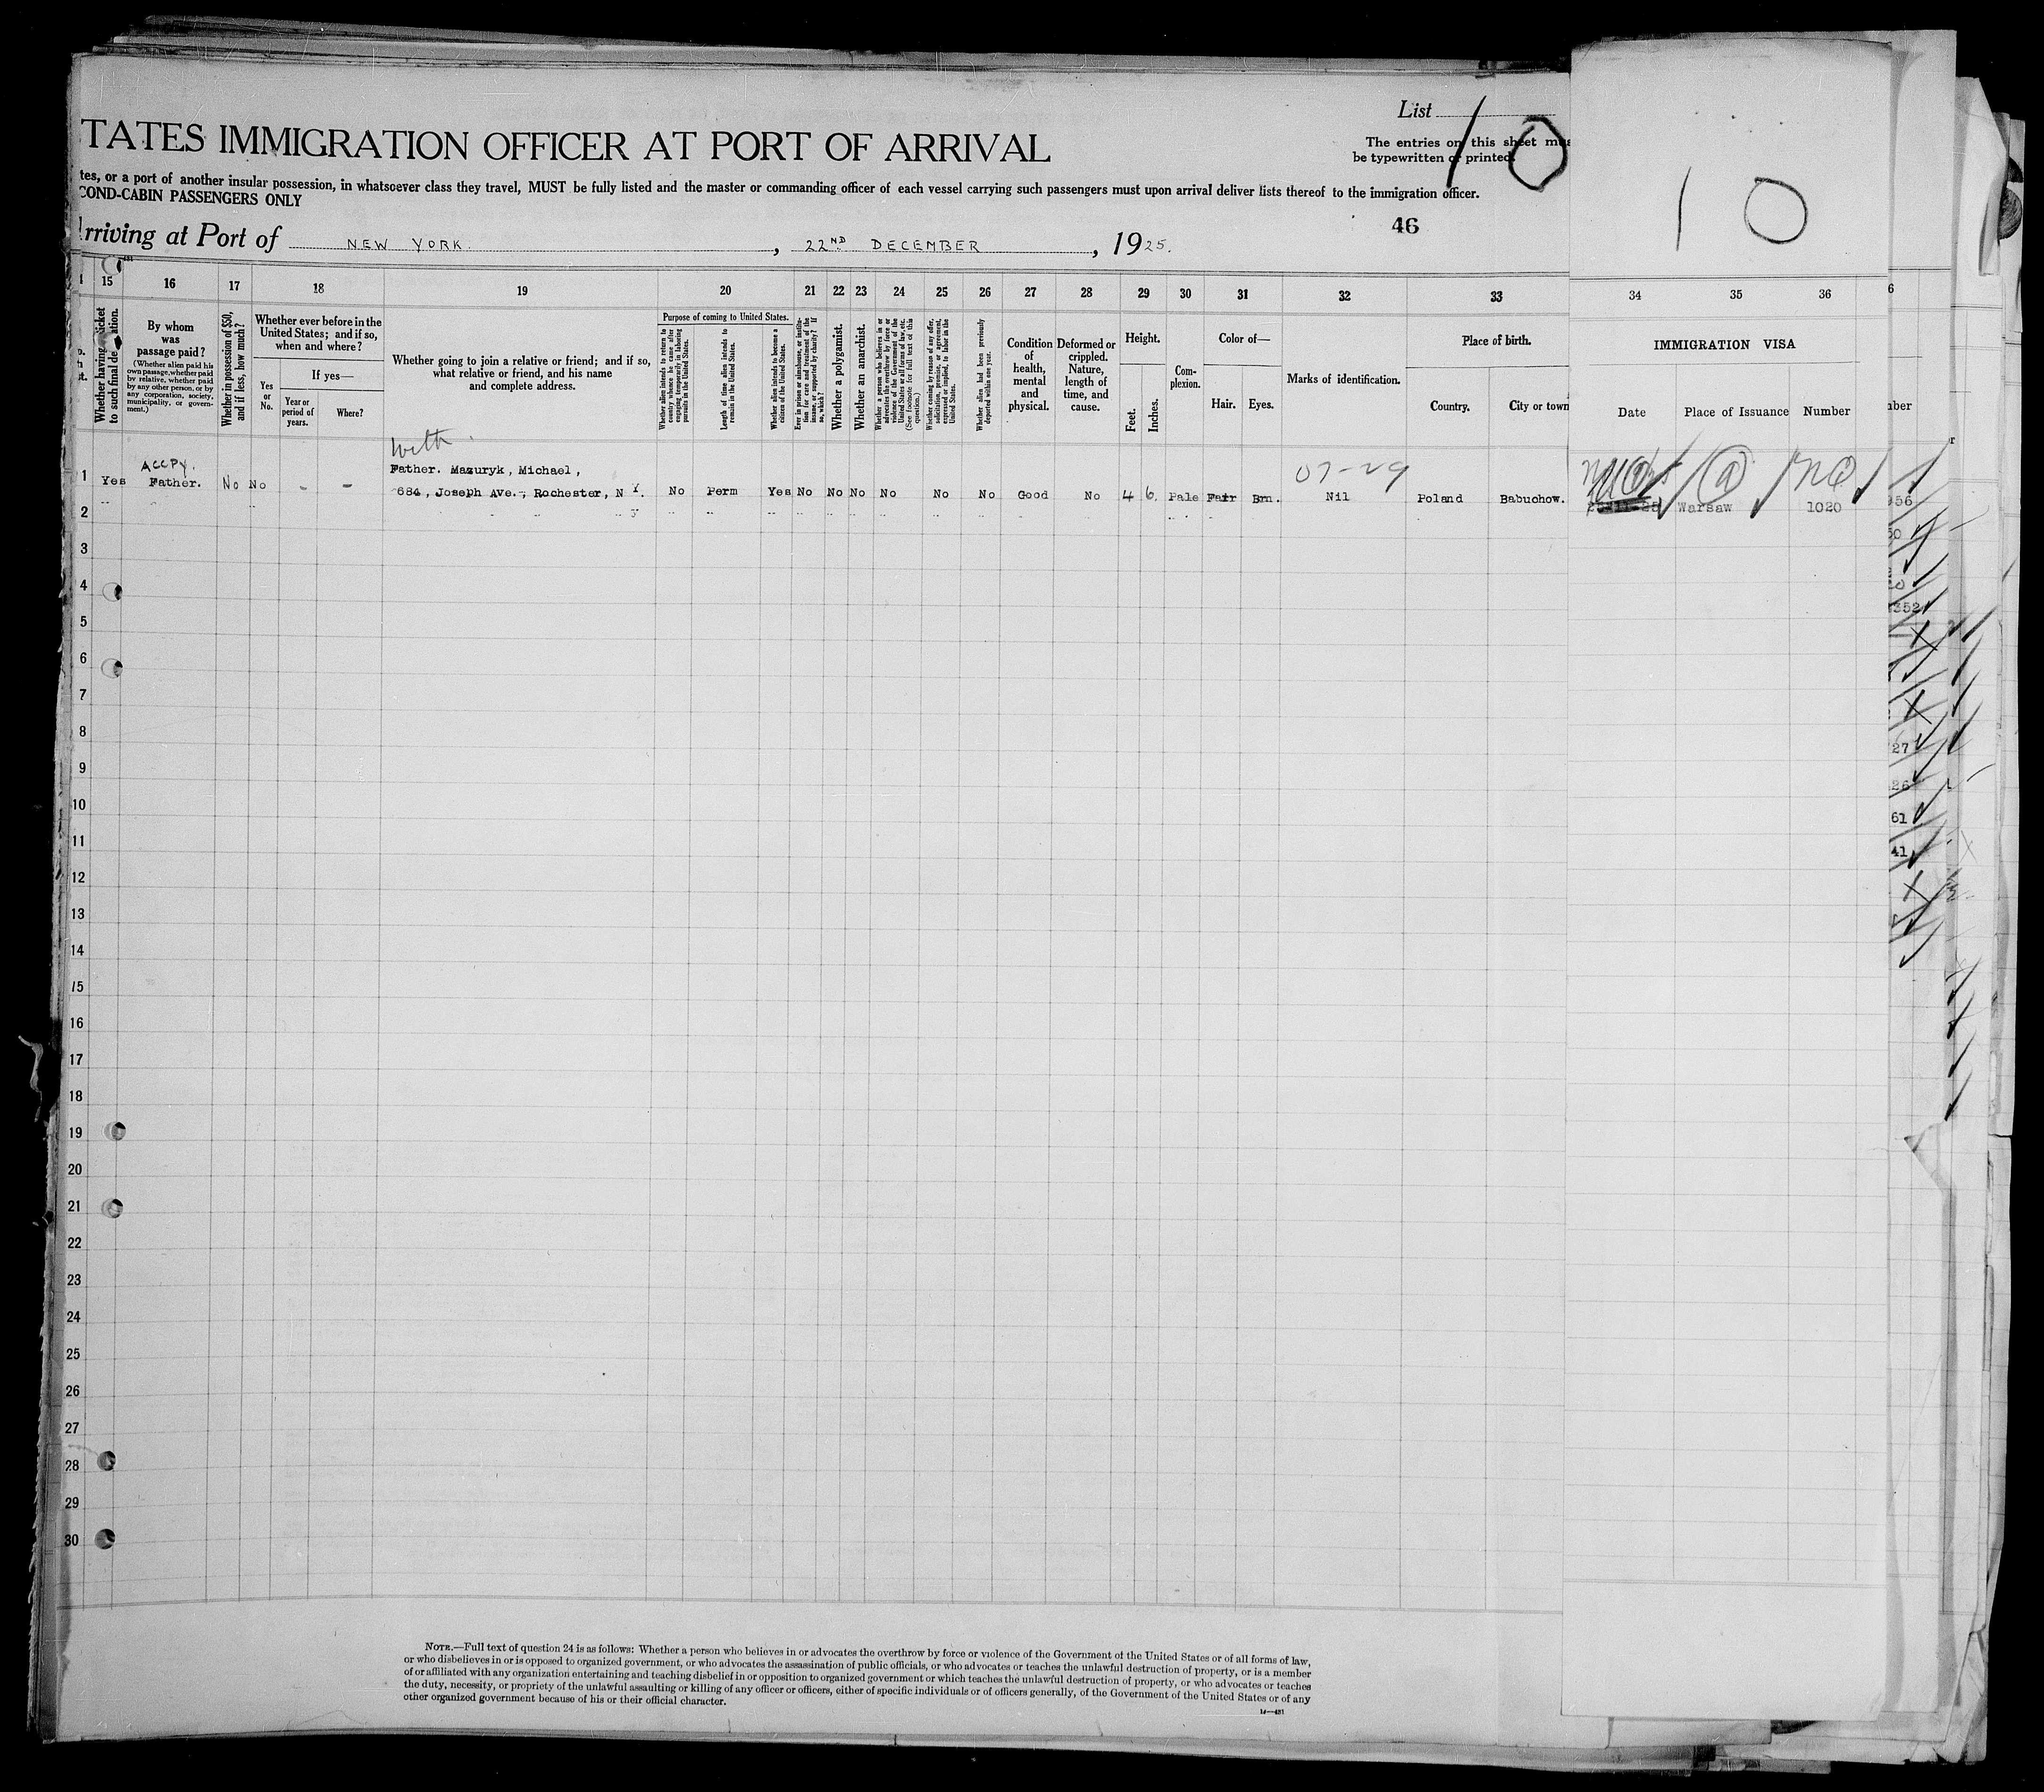 List
TATES IMMIGRATION OFFICER AT PORT OF ARRIVAL
10
The entries on this sheet mus
be typewritten or printed.
tes, or a port of another insular possession, in whatsoever class they travel, MUST be fully listed and the master or commanding officer of each vessel carrying such passengers must upon arrival deliver lists thereof to the immigration officer.
COND-CABIN PASSENGERS ONLY
10
46
rriving at Port of NEW YORK. , 22ND DECEMBER , 1925.
15 16 17 18 19 20 21 22 23 24 25 26 27 28 29 30 31 32 33 34 35 36 6
Whether having ticket to such final destination.
By whom was passage paid?
(Whether alien paid his own passage, whether paid by relative, whether paid by any other person, or by any corporation, society, municipality, or government.)
Whether in possession of $50, and if less, how much?
Whether ever before in the United States; and if so, when and where?
Yes or No.
If yes—
Year or period of years.
Where?
Whether going to join a relative or friend; and if so, what relative or friend, and his name and complete address.
Purpose of coming to United States.
Whether alien intends to return to country whence he came after engaging temporarily in laboring pursuits in the United States.
Length of time alien intends to remain in the United States.
Whether alien intends to become a citizen of the United States.
Ever in prison or almshouse, or institution for care and treatment of the insane, or supported by charity? If so, which?
Whether a polygamist.
Whether an anarchist.
Whether a person who believes in or advocates the overthrow by force or violence of the Government of the United States or all forms of law, etc. (See footnote for full text of this question.)
Whether coming by reason of any offer, solicitation, promise, or agreement, expressed or implied, to labor in the United States.
Whether alien had been previously deported within one year.
Condition of health, mental and physical.
Deformed or crippled. Nature, length of time, and cause.
Height.
Feet.
Inches.
Complexion.
Color of—
Hair.
Eyes.
Marks of identification.
Place of birth.
Country.
City or town
IMMIGRATION VISA
Date
Place of Issuance
Number
nber
With
ACCPY.
Father. Mazuryk, Michael,
07-29
1 Yes Father. No No - - 684, Joseph Ave., Rochester, N Y. No Perm Yes No No No No No No Good No 4 6 Pale Fair Brn. Nil Poland Babuchow. Warsaw 1020
956
2
50
3
4
352
5
6
7
8
27
9
26
10
61
11
41
12
13
14
15
16
17
18
19
20
21
22
23
24
25
26
27
28
29
30
NOTE.—Full text of question 24 is as follows: Whether a person who believes in or advocates the overthrow by force or violence of the Government of the United States or of all forms of law,
or who disbelieves in or is opposed to organized government, or who advocates the assassination of public officials, or who advocates or teaches the unlawful destruction of property, or is a member
of or affiliated with any organization entertaining and teaching disbelief in or opposition to organized government or which teaches the unlawful destruction of property, or who advocates or teaches
the duty, necessity, or propriety of the unlawful assaulting or killing of any officer or officers, either of specific individuals or of officers generally, of the Government of the United States or of any
other organized government because of his or their official character.